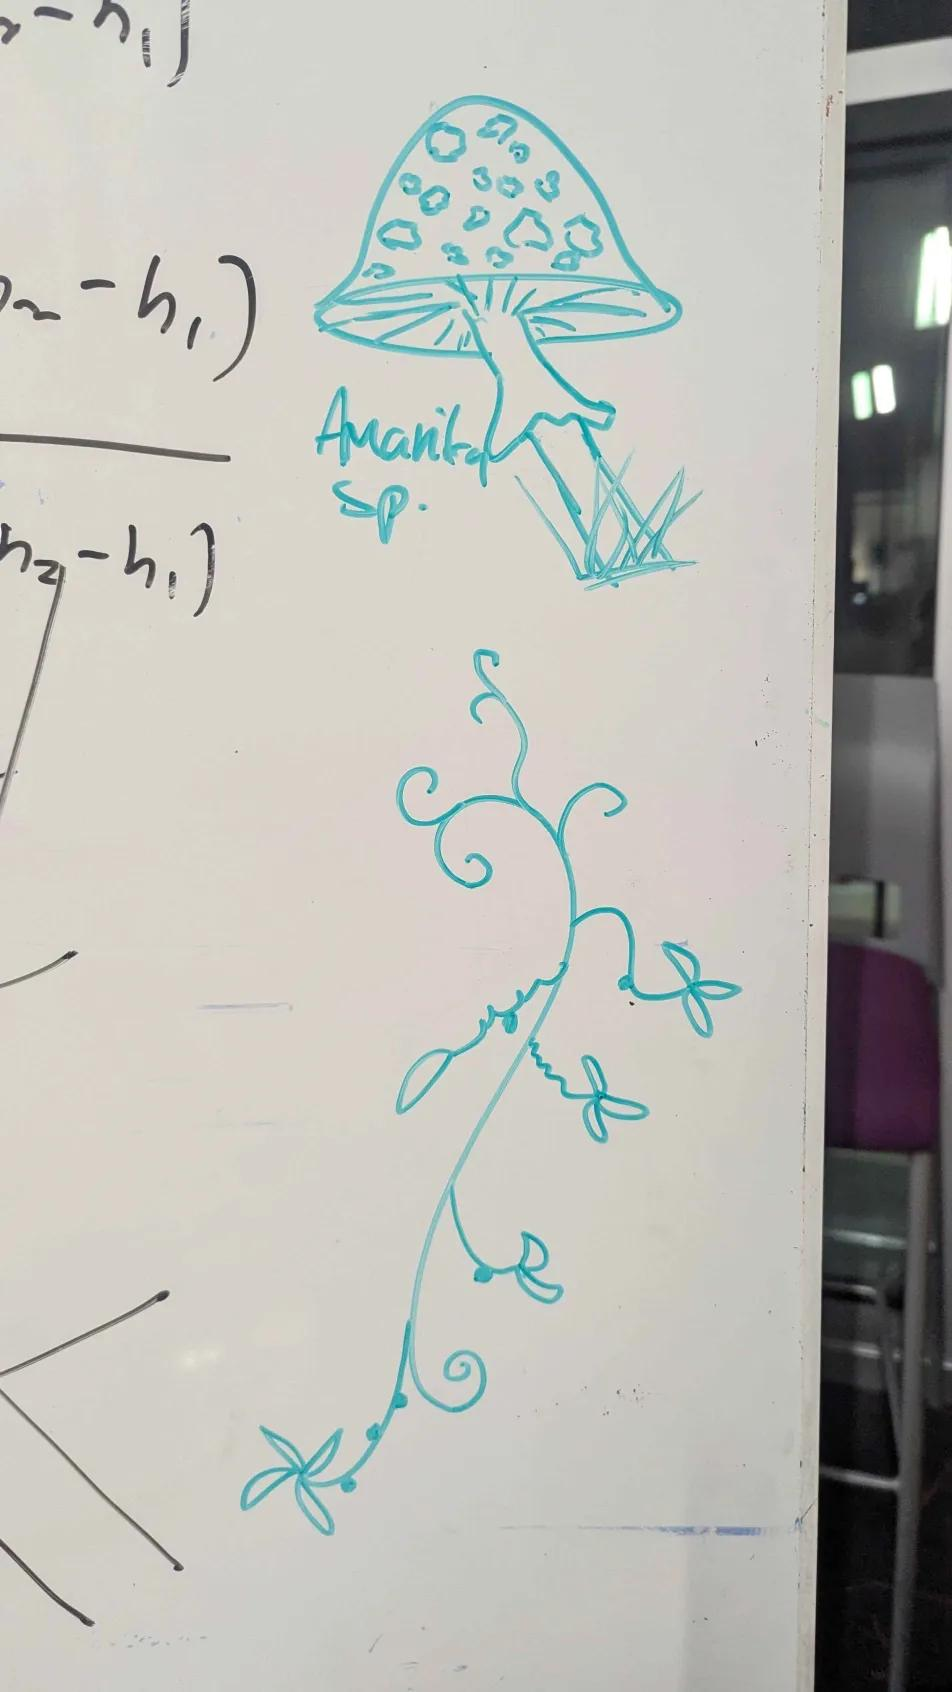 2 - h₁)
h₂ - h₁)
h₂ - h₁)
Amanita
sp.